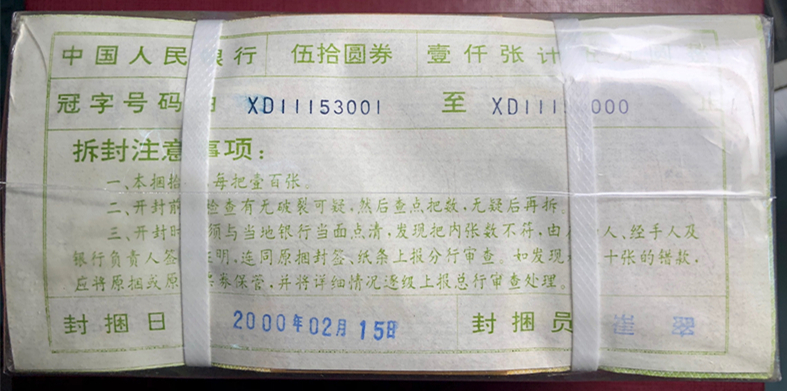 中国人民银行 伍拾圆券 壹仟张计
冠字号码 XD11153001 至 000 止
拆封注意事项：
一、本捆拾 每把壹百张。
二、开封前 检查有无破裂可疑，然后查点把数，无疑后再拆
三、开封时 须与当地银行当面点清，发现把内张数不符，由 人、经手人及
银行负责人签 证明，连同原捆封签、纸条上报分行审查。如发现 十张的错款，
应将原捆或原 券保管，并将详细情况逐级上报总行审查处理。
封捆日 2000年02月15日 封捆员 崔翠